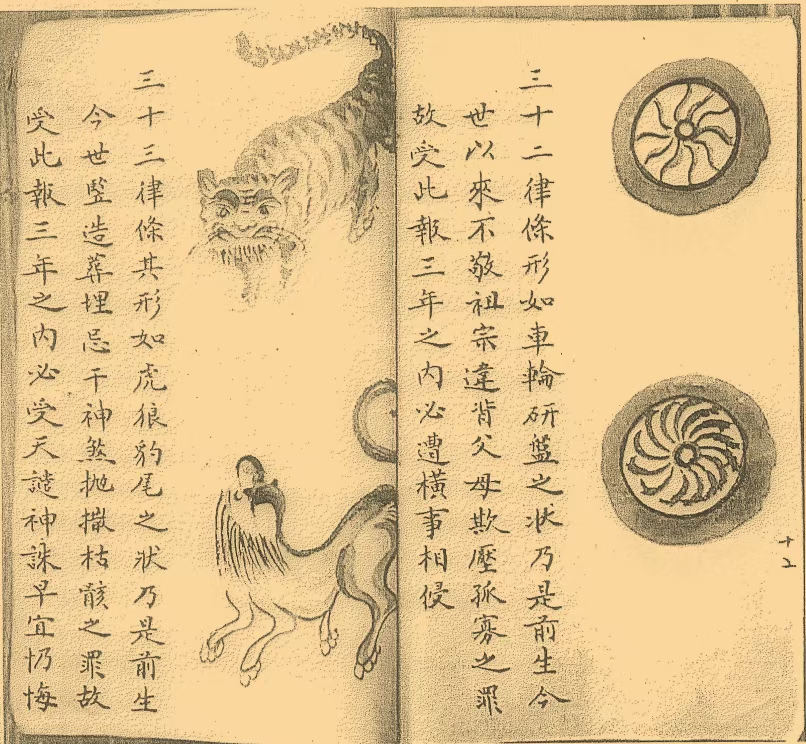 十二
三十二律條形如車輪研盤之状乃是前生今
世以來不敬祖宗違背父母欺壓孤寡之罪
故受此報三年之内必遭橫事相侵
三十三律條其形如虎狼豹尾之状乃是前生
今世竪造葬埋忌干神煞抛撒枯骸之罪故
受此報三年之内必受天譴神誅早宜忏悔